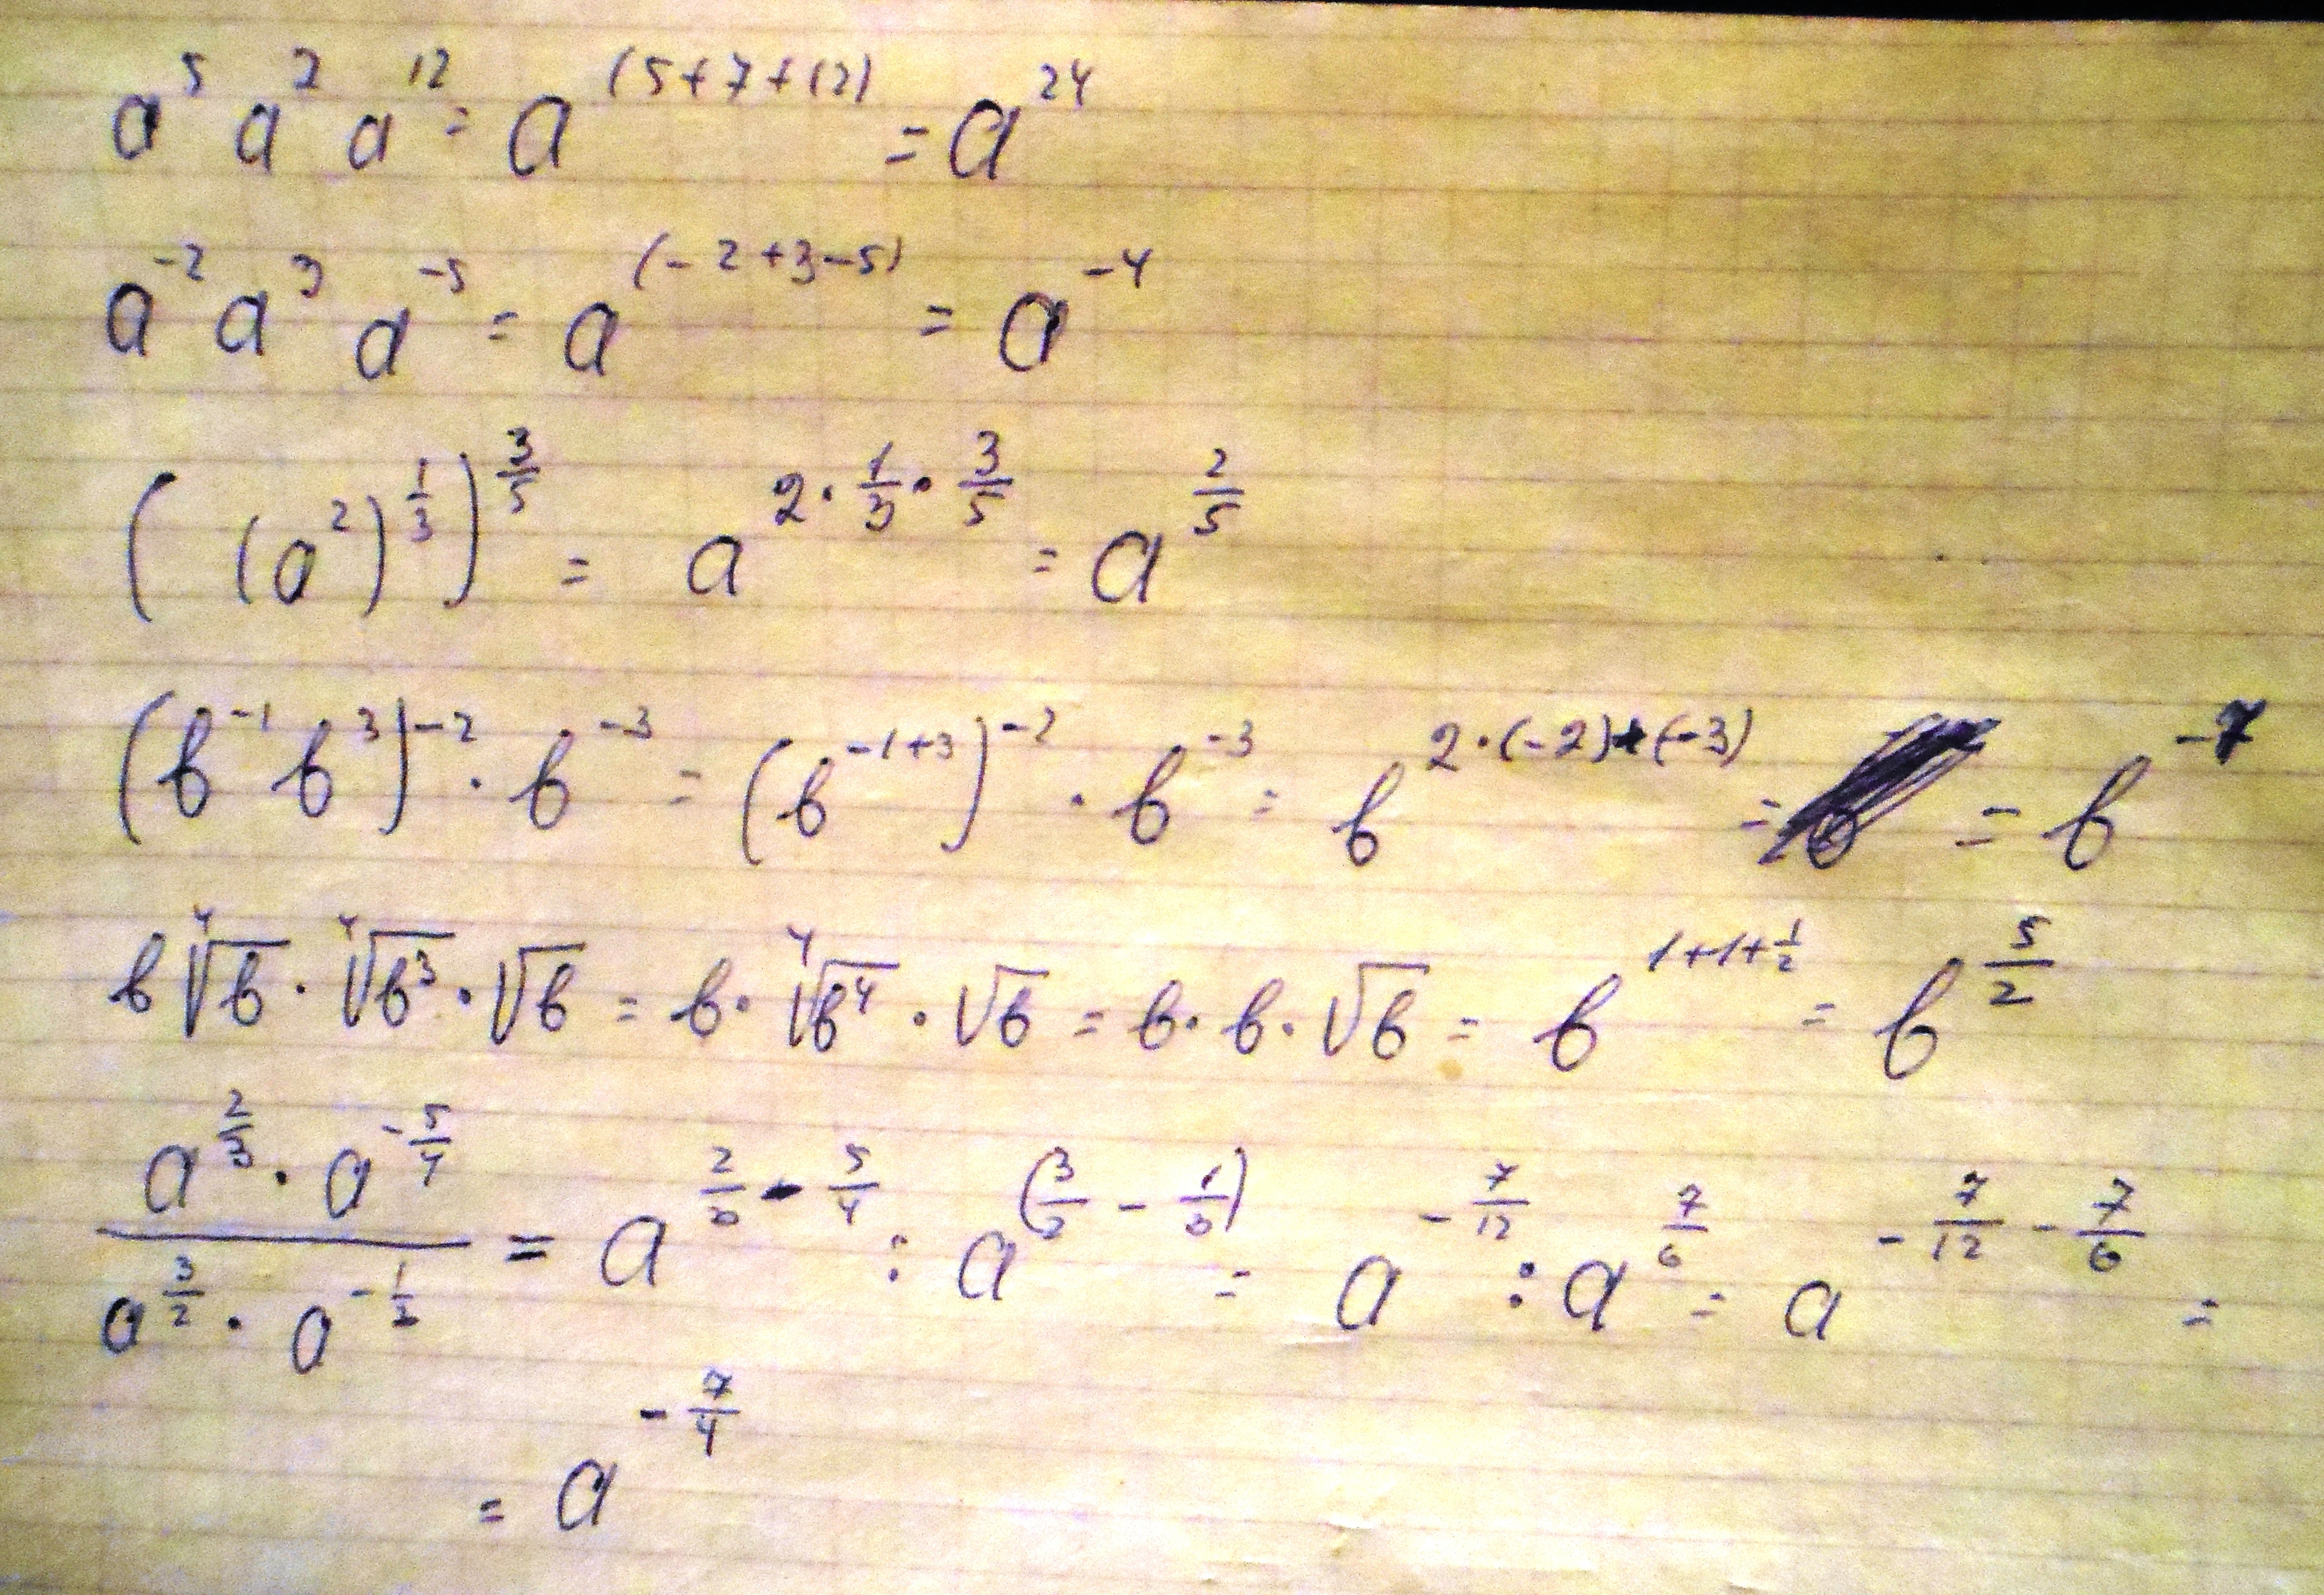 a⁵ a⁷ a¹² = a^(5+7+12) = a²⁴
a⁻² a³ a⁻⁵ = a^(-2+3-5) = a⁻⁴
((a²)^(1/3))^(3/5) = a^(2·1/3·3/5) = a^(2/5)
(b⁻¹ b³)⁻² · b⁻³ = (b^(-1+3))⁻² · b⁻³ = b^(2·(-2)+(-3)) = = b⁻⁷
b ∜b · ∜b³ · √b = b · ∜b⁴ · √b = b · b · √b = b^(1+1+1/2) = b^(5/2)
(a^(2/3) · a^(-5/4)) / (a^(3/2) · a^(-1/3)) = a^(2/3 - 5/4) : a^(3/2 - 1/3) = a^(-7/12) : a^(7/6) = a^(-7/12 - 7/6) =
= a^(-7/4)